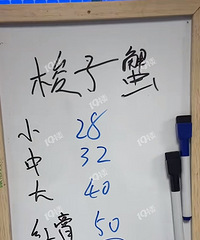 梭子蟹
小 28
中 32
大 40
红膏 50